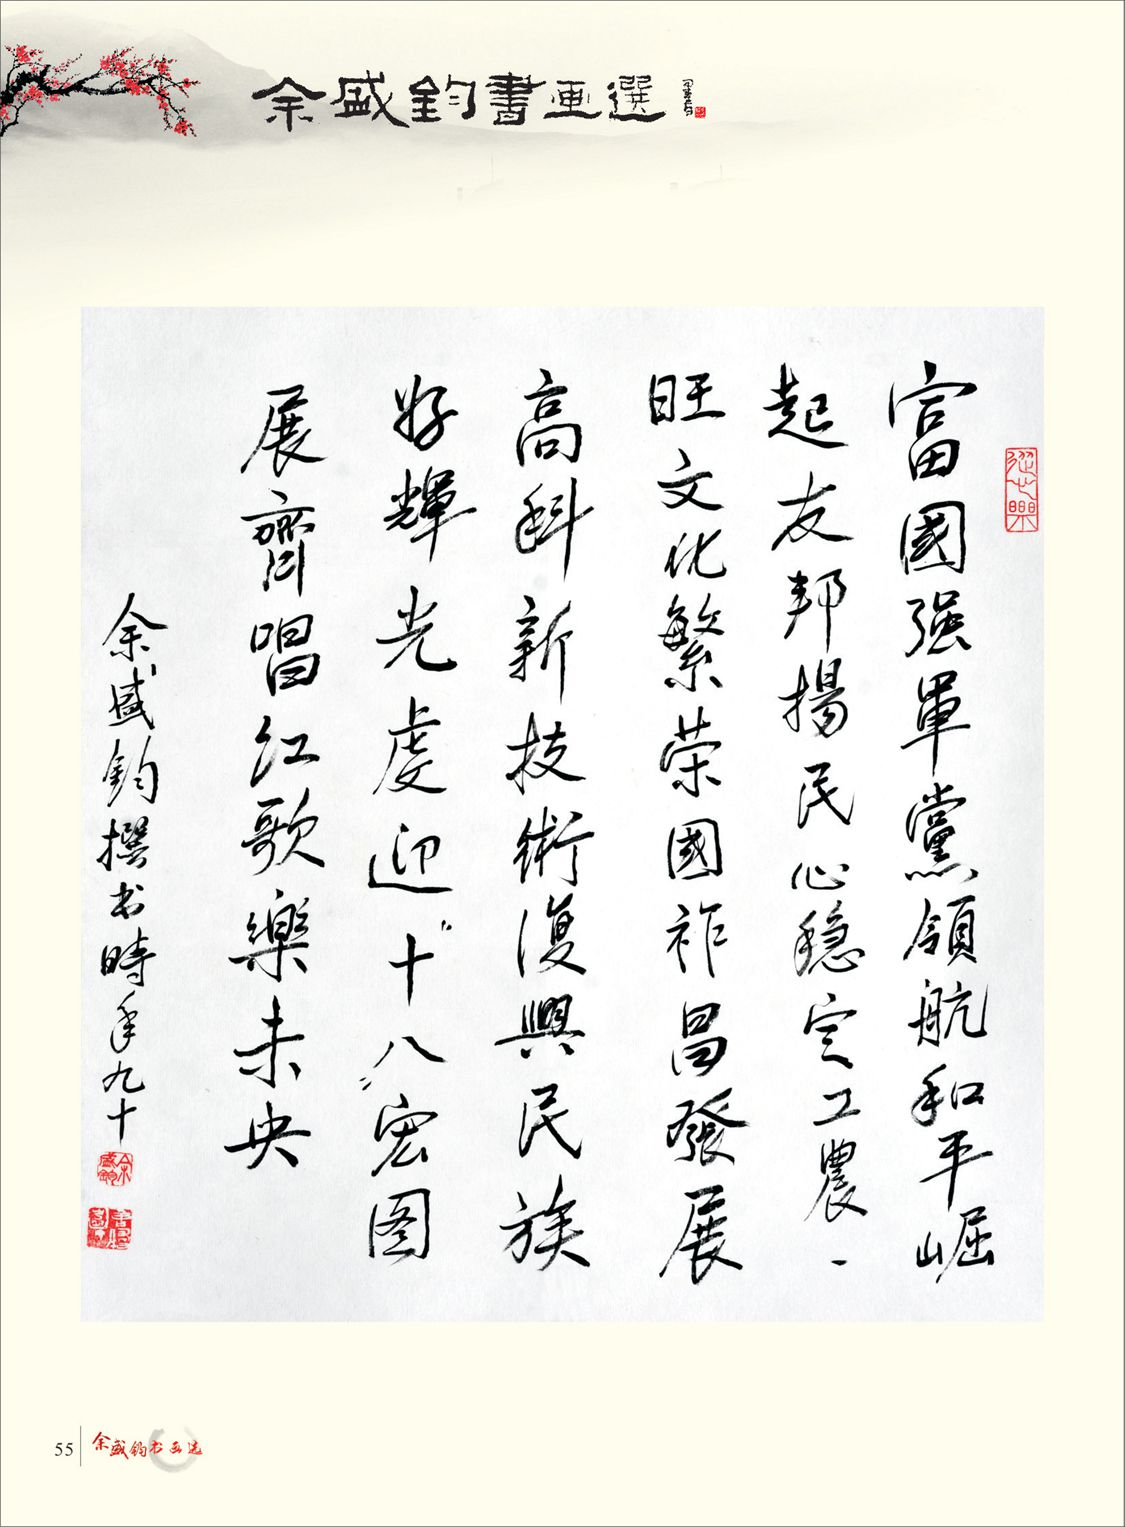 余盛鈞書画選
富國强軍黨領航和平崛
起友邦揚民心穩定工農一
旺文化繁荣國祚昌發展
高科新技術復興民族
好輝光虔迎"十八"宏图
展齊唱红歌樂未央
余盛鈞撰书時年九十
55
余盛鈞书画选